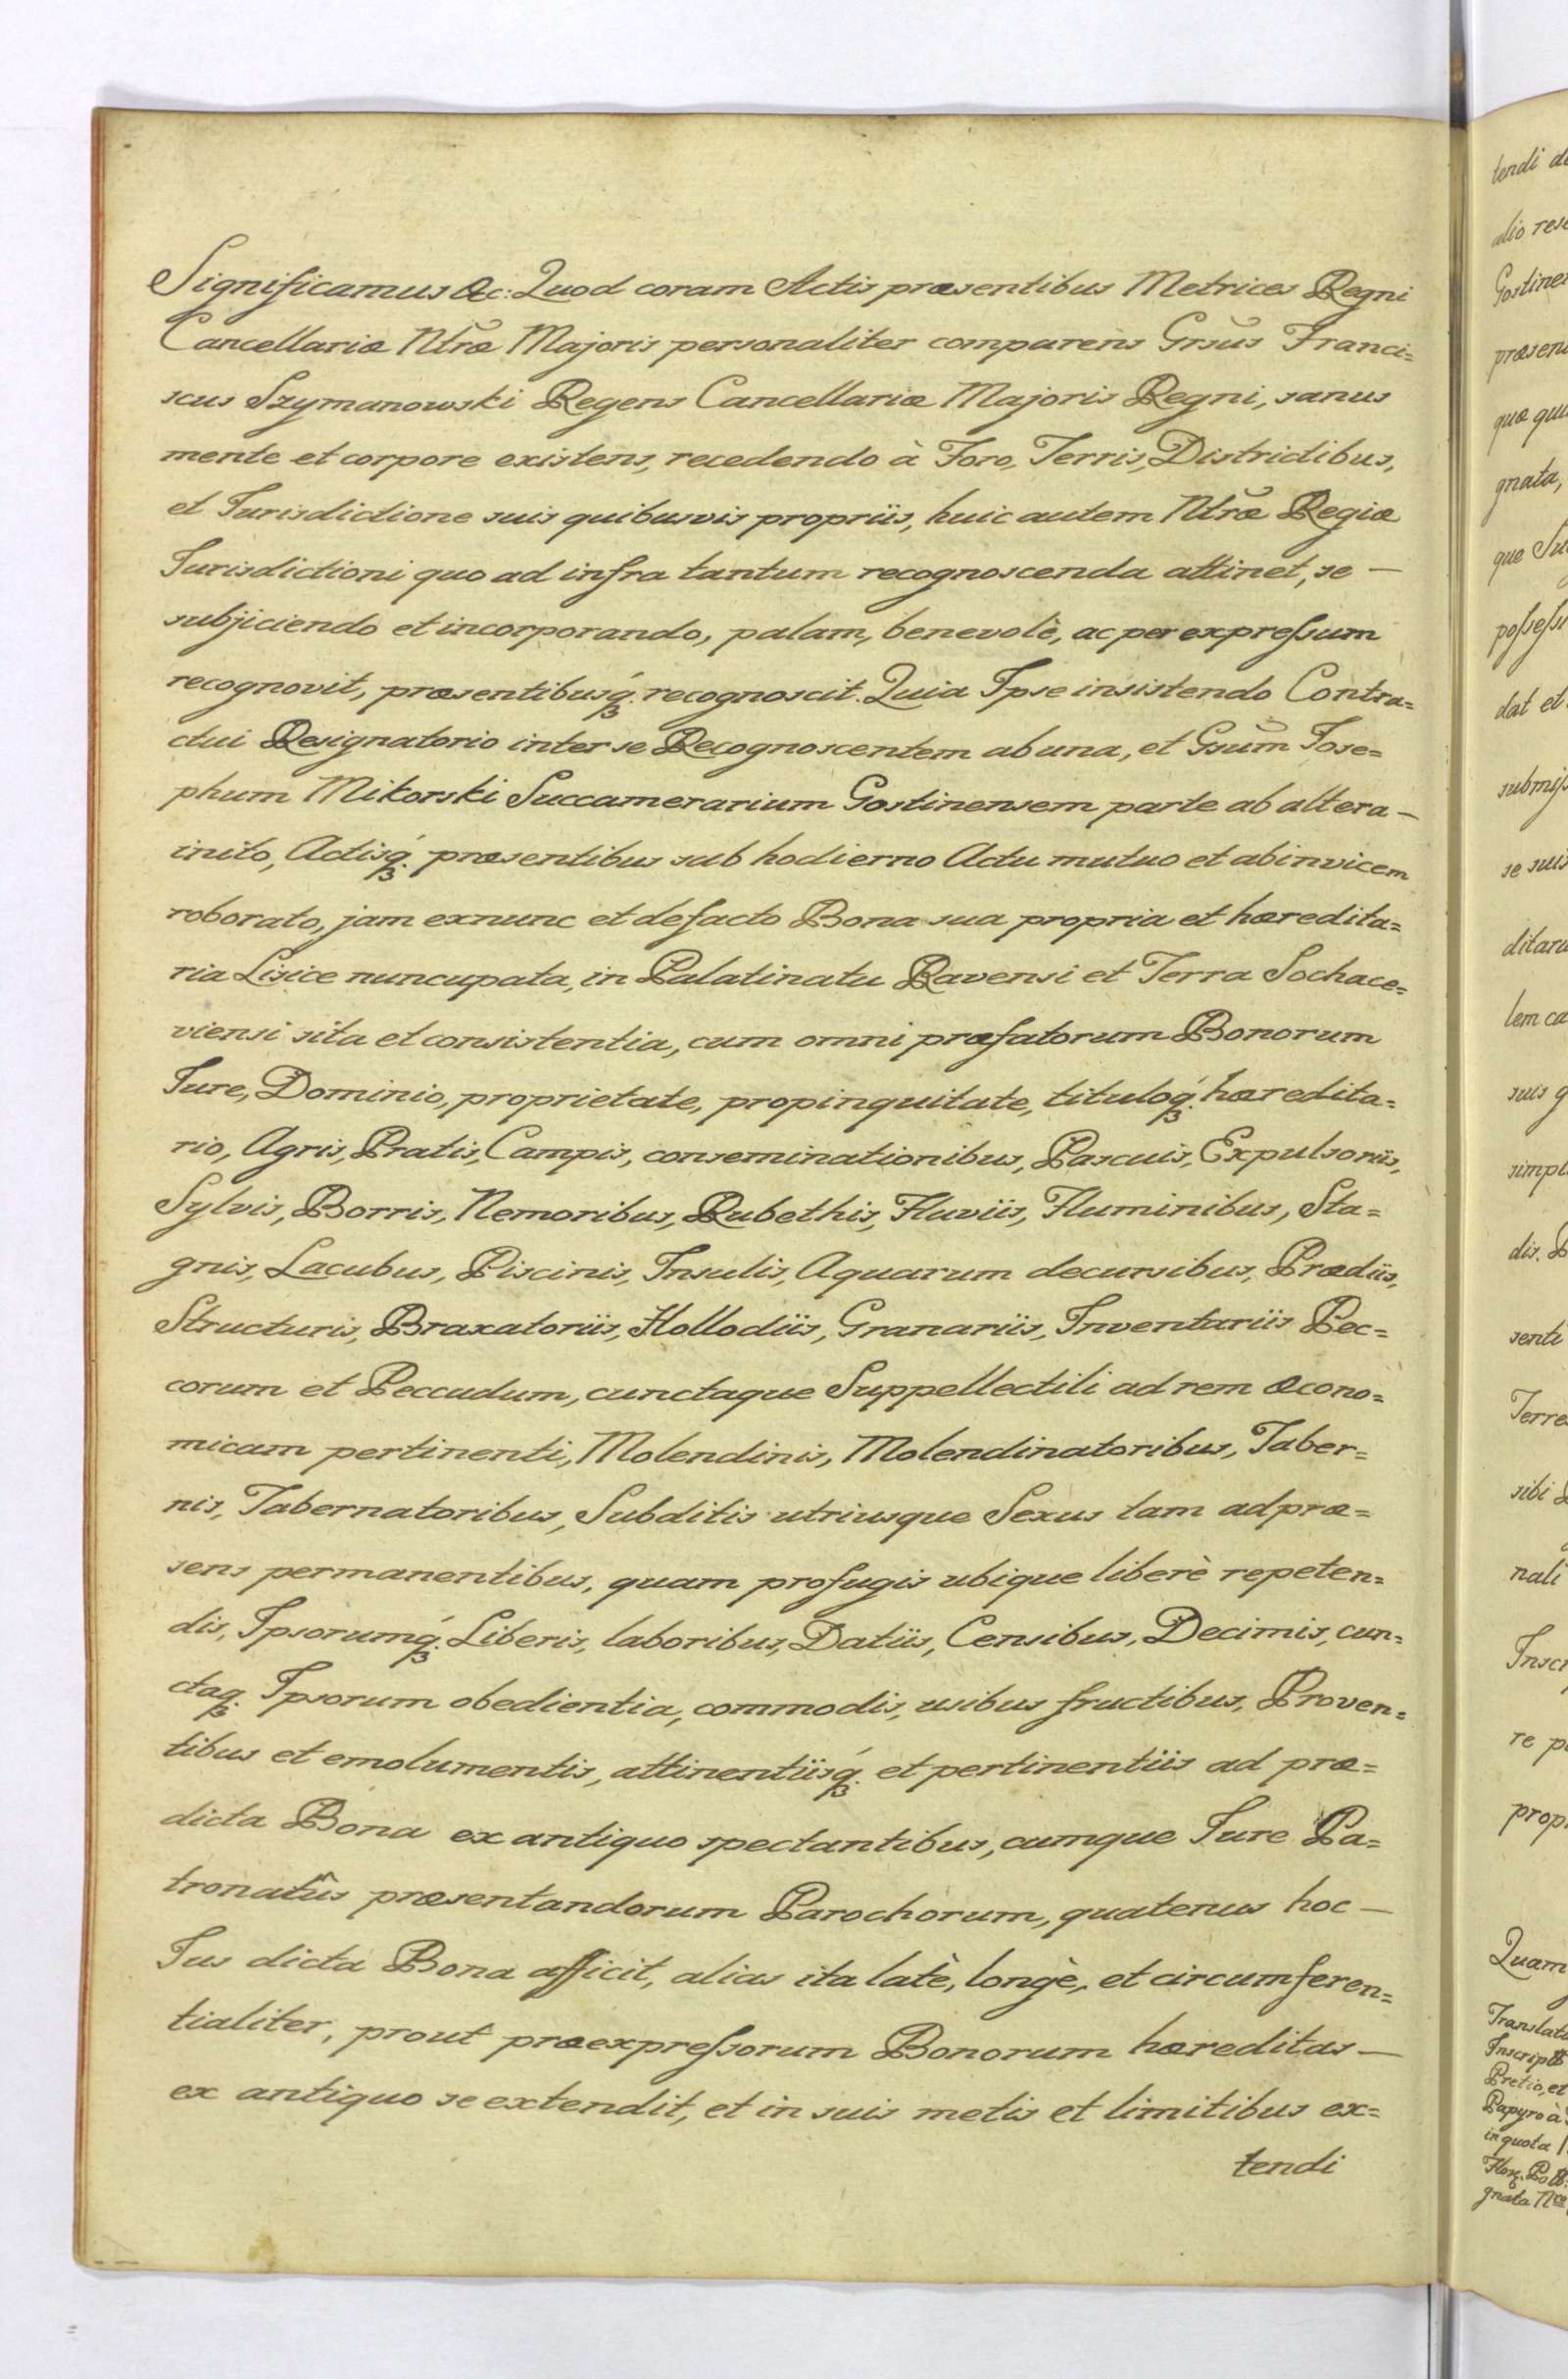 Significamus &c: Quod coram Actis præsentibus Metrices Regni
Cancellariæ Ntræ Majoris personaliter comparens Grsus Franci=
scus Szymanowski Regens Cancellariæ Majoris Regni, sanus
mente et corpore existens, recedendo à Foro, Terris, Districtibus,
et Jurisdictione suis quibusvis propriis, huic autem Ntræ Regiæ
Jurisdictioni quo ad infra tantum recognoscenda attinet, se —
subjiciendo et incorporando, palam, benevolè, ac per expreſsum
recognovit, præsentibusq́ꝫ. recognoscit. Quia Ipse insistendo Contra=
ctui Resignatorio inter se Recognoscentem ab una, et Gsum Jose=
phum Mikorski Succamerarium Gostinensem parte ab altera —
inito, Actisq́ꝫ. præsentibus sub hodierno Actu mutuo et abinvicem
roborato, jam exnunc et defacto Bona sua propria et hæredita=
ria Lisice nuncupata, in Palatinatu Ravensi et Terra Sochace=
viensi sita et consistentia, cum omni præfatorum Bonorum
Jure, Dominio, proprietate, propinquitate, tituloq́ꝫ. hæredita=
rio, Agris, Pratis, Campis, conseminationibus, Pascuis, Expulsoriis,
Sylvis, Borris, Nemoribus, Rubethis, Fluviis, Fluminibus, Sta=
gnis, Lacubus, Piscinis, Insulis, Aquarum decursibus, Prædiis,
Structuris, Braxatoriis, Hollodiis, Granariis, Inventariis Pec=
corum et Peccudum, cunctaque Suppellectili ad rem œcono=
micam pertinenti, Molendinis, Molendinatoribus, Taber=
nis, Tabernatoribus, Subditis utriusque Sexus tam ad præ=
sens permanentibus, quam profugis ubique liberè repeten=
dis, Ipsorumq́ꝫ. Liberis, laboribus, Datiis, Censibus, Decimis, cun=
ctaqꝫ. Ipsorum obedientia, commodis, usibus fructibus, Proven=
tibus et emolumentis, attinentiisq́ꝫ. et pertinentiis ad præ=
dicta Bona ex antiquo spectantibus, cumque Jure Pa=
tronatûs præsentandorum Parochorum, quatenus hoc —
Jus dicta Bona afficit, alias ita latè, longè, et circumferen=
tialiter, prout præexpreſsorum Bonorum hæreditas —
ex antiquo se extendit, et in suis metis et limitibus ex=
tendi
tendi
Gostinen
præsen
gnata,
dat et
se suis
simpl
senti
sibi
nali
re
Quam
Pretio, et
Papyro à
in quota